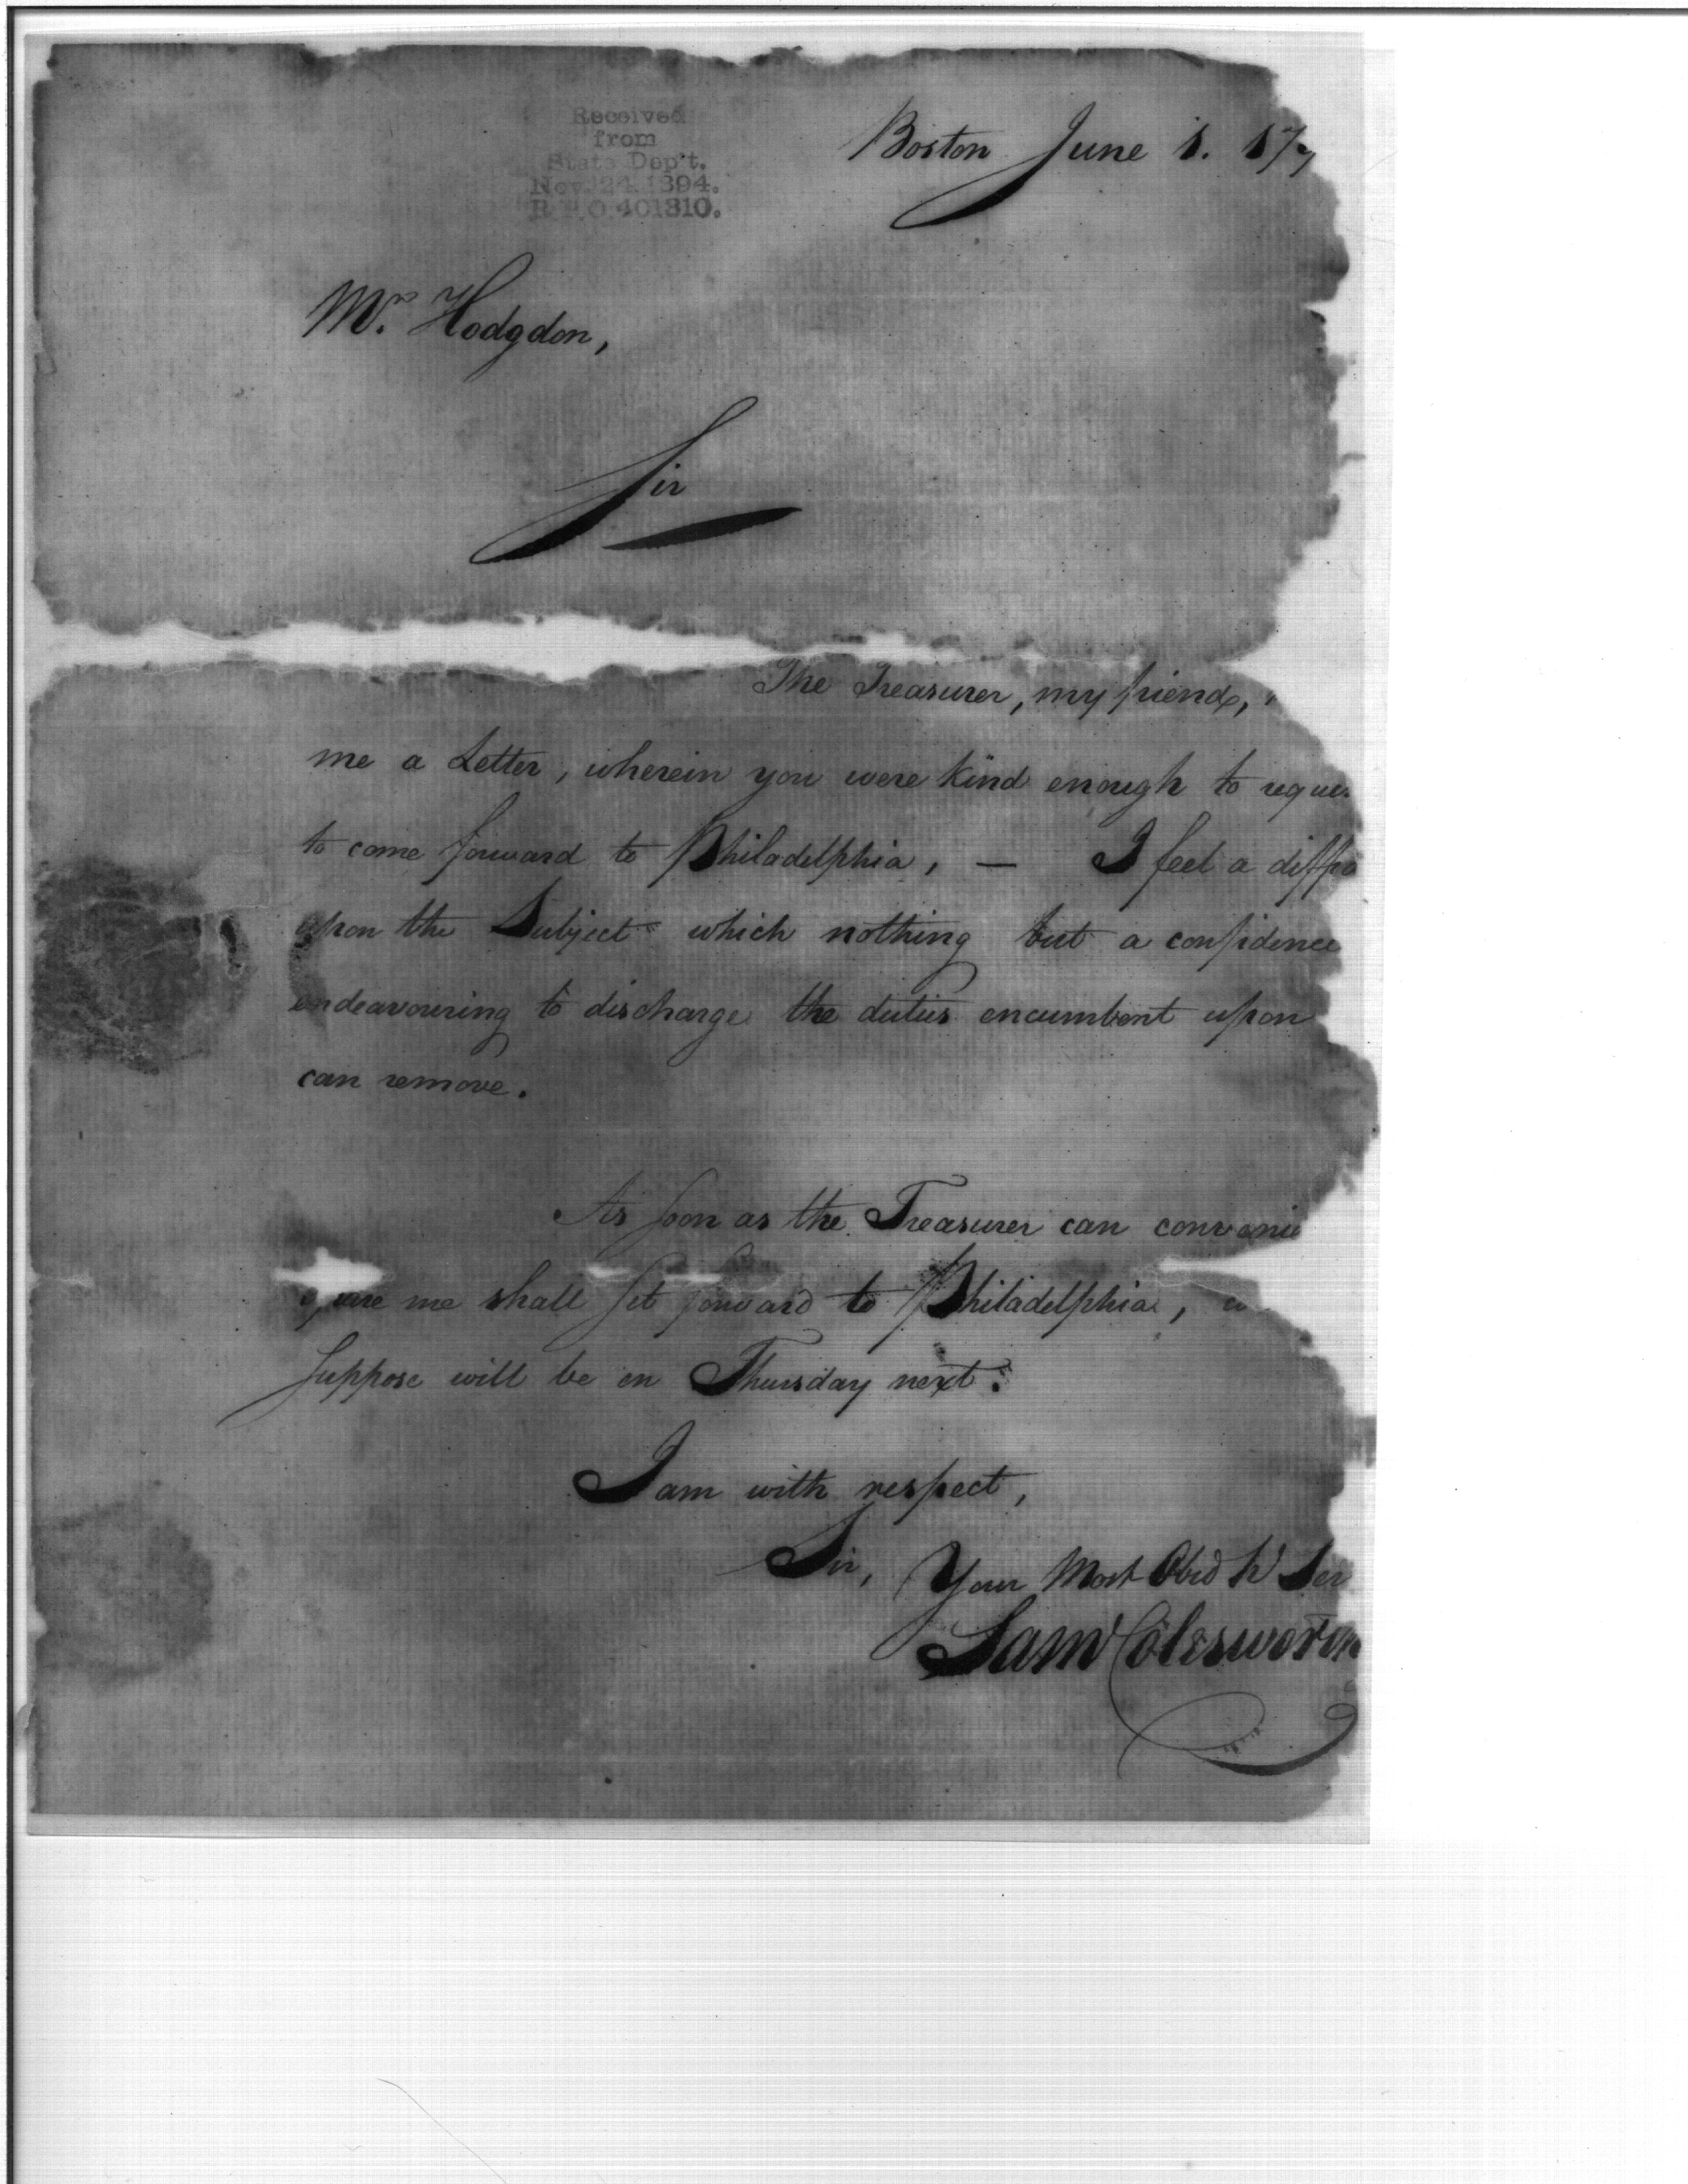 Received
from
State Dep't.
Nov. 24 1894.
R. P. O. 401310.
Boston June 1. 17
Mr. Hodgdon,
Sir
The Treasurer, my friend,
me a Letter, wherein you were kind enough to reques
to come forward to Philadelphia, — I feel a diffe
upon the Subject which nothing but a confidence
endeavouring to discharge the duties encumbent upon
can remove.
As soon as the Treasurer can convenie
me shall set forward to Philadelphia,
suppose will be on Thursday next.
I am with respect,
Sir, Your Most Obed.t Ser
Saml Colesworth